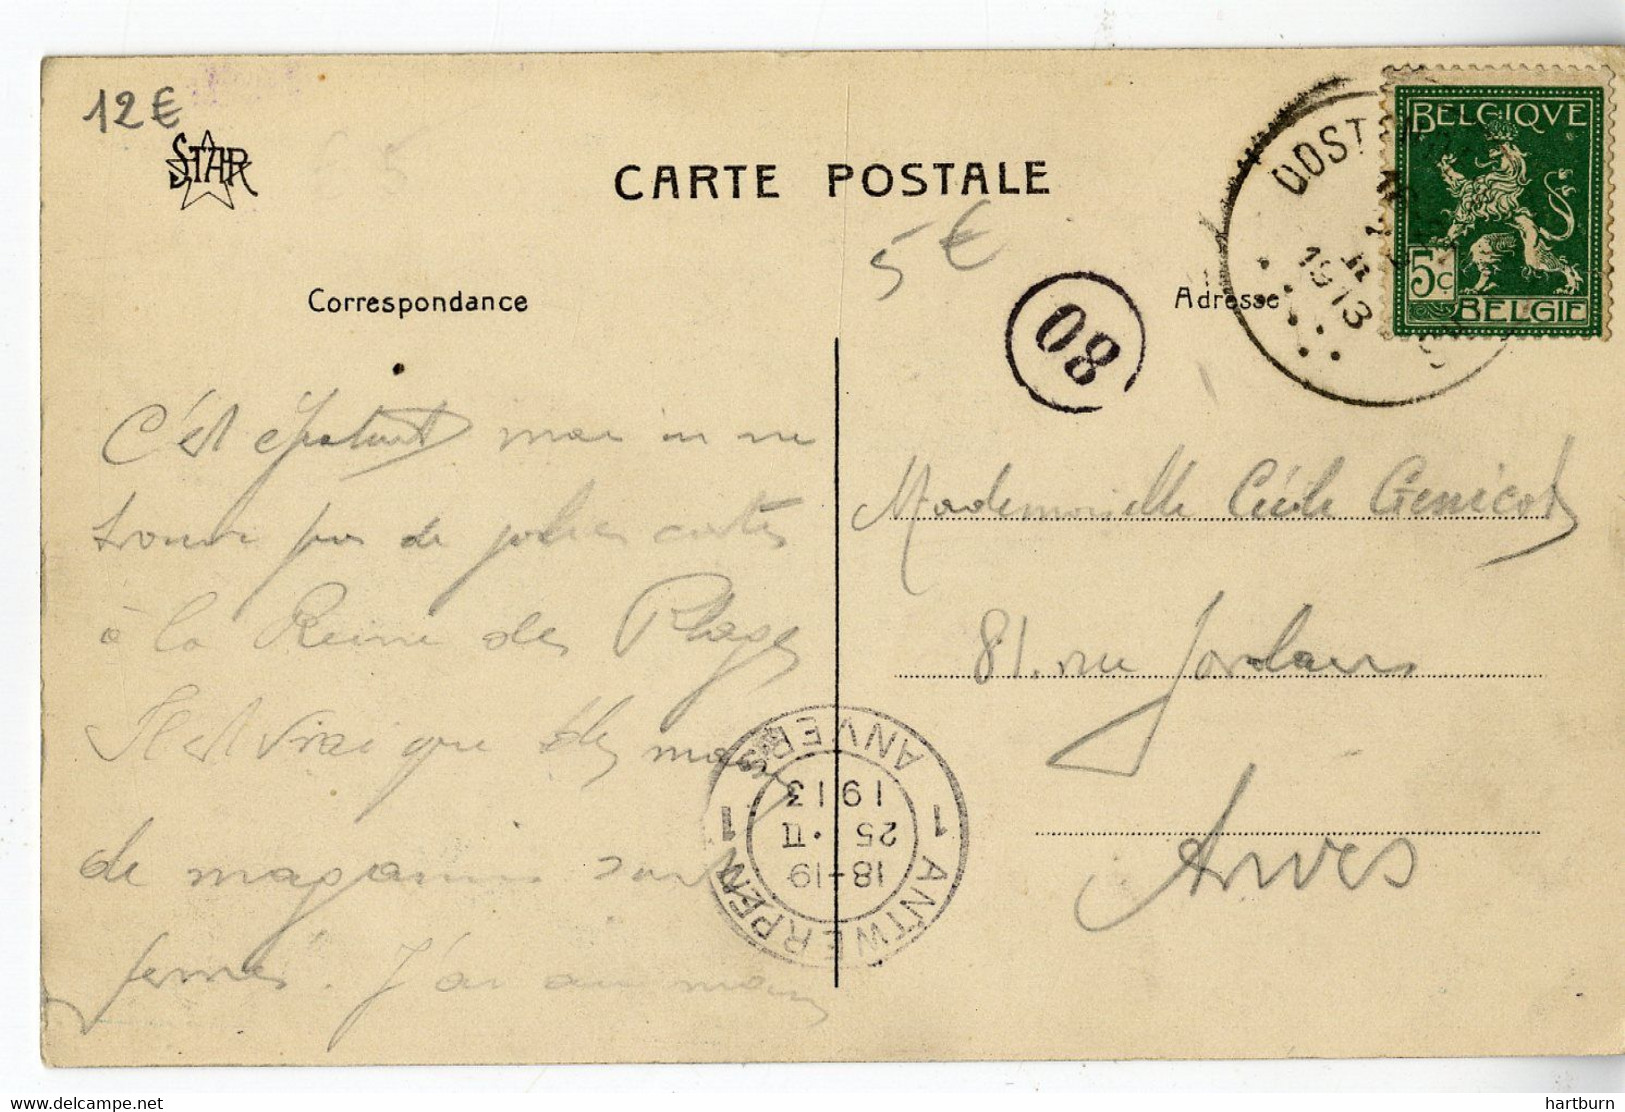 12€
STAR
CARTE POSTALE
5€
Correspondance
Adresse
08
BELGIQVE
5c
BELGIE
OOST
1913
C'est épatant mais on ne
trouve pas de jolies cartes
à la Reine des Plages
Il est vrai que des
de magasins sont
fermés. J'ai au moins
Mademoiselle Cécile Genicot
81. rue Jordaens
Anvers
1 ANTWERPEN 1
ANVERS
18-19
25 . II
1913
delcampe.net
hartburn